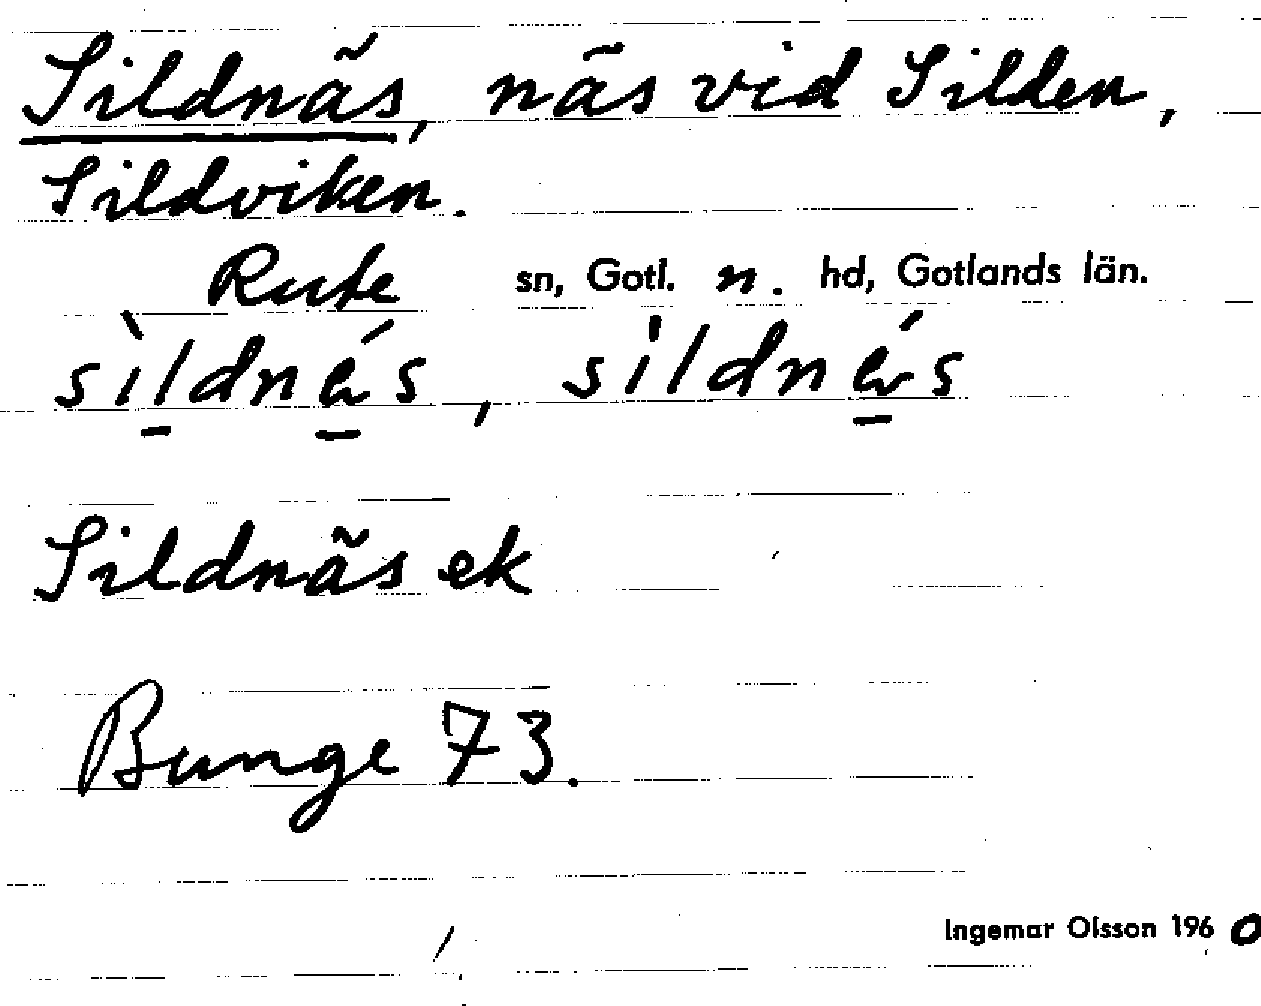 Sildnäs, näs vid Silden,
Sildviken.
Rute sn, Gotl. n. hd, Gotlands län.
sìldnés, sìldnés
Sildnäs ek
Bunge 73.
Ingemar Olsson 1960